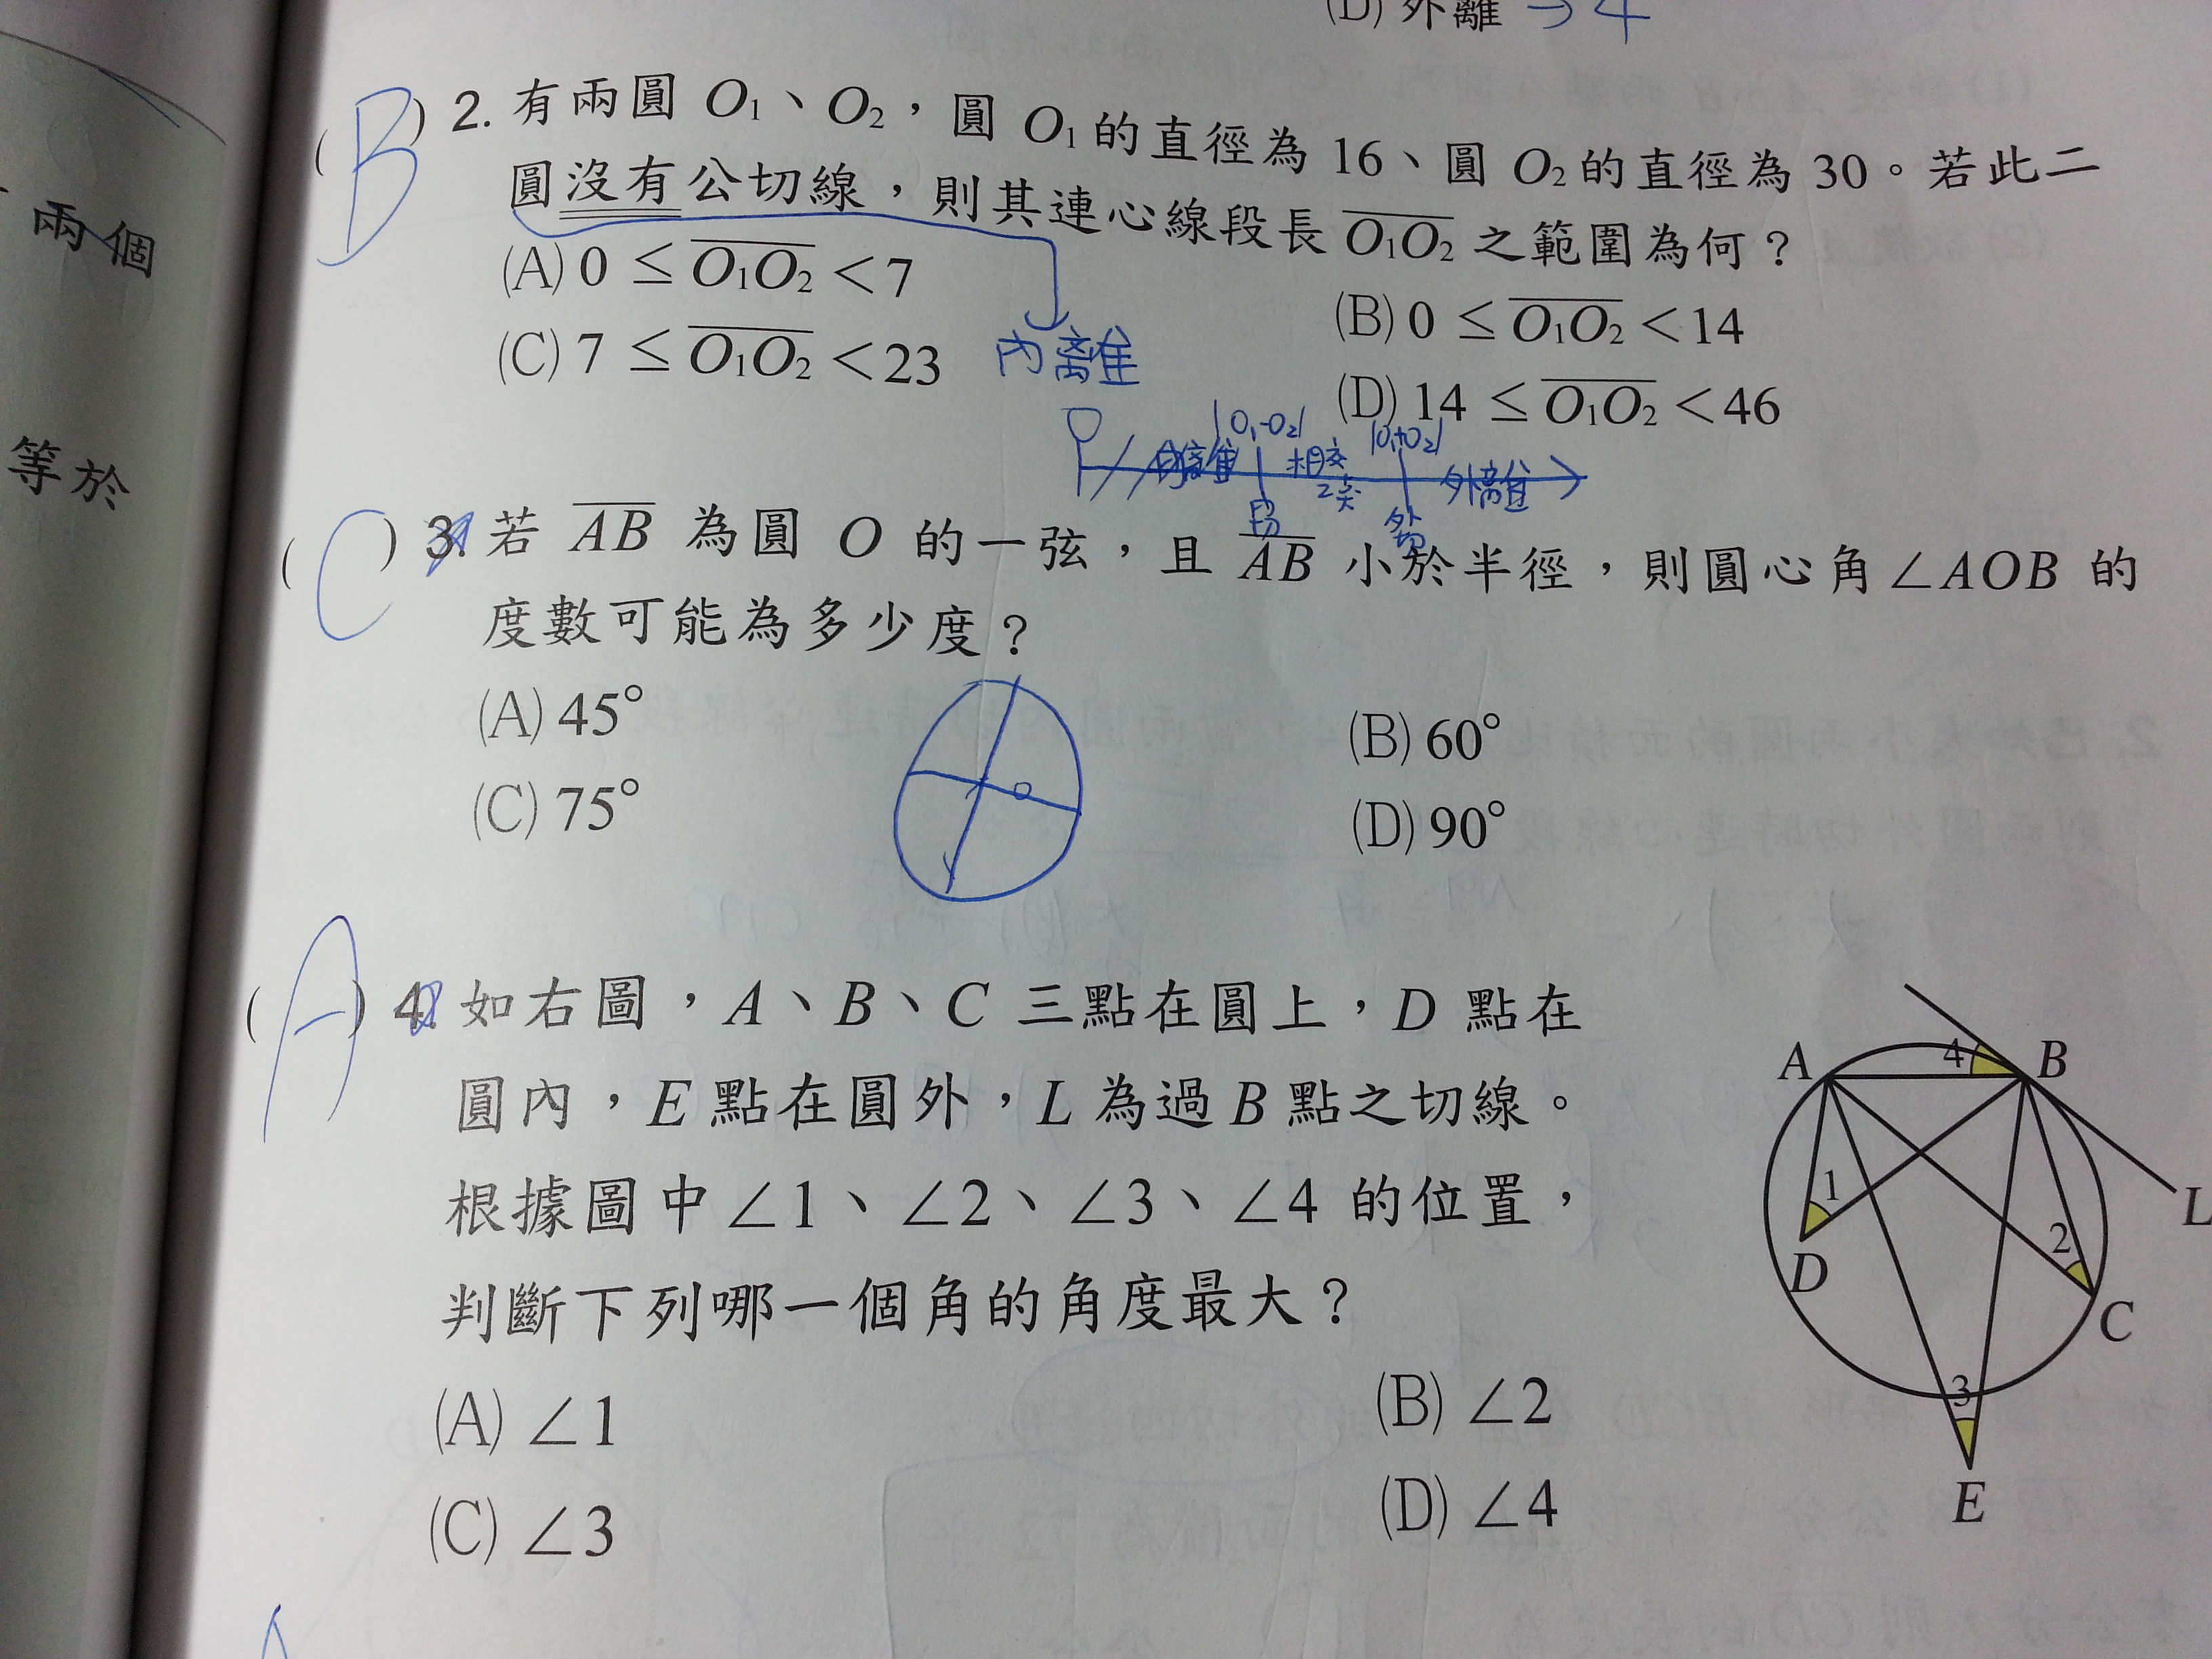 (D) 外離 → 4
(B) 2. 有兩圓 O₁、O₂，圓 O₁ 的直徑為 16、圓 O₂ 的直徑為 30。若此二
兩個
圓沒有公切線，則其連心線段長 O₁O₂ 之範圍為何？
(A) 0 ≤ O₁O₂ < 7
(B) 0 ≤ O₁O₂ < 14
(C) 7 ≤ O₁O₂ < 23
內離
(D) 14 ≤ O₁O₂ < 46
|O₁-O₂| |O₁+O₂|
內離 相交 外離
2交
內切 外切
等於
(C) 3. 若 AB 為圓 O 的一弦，且 AB 小於半徑，則圓心角∠AOB 的
度數可能為多少度？
(A) 45°
(B) 60°
O
(C) 75°
(D) 90°
(A) 4. 如右圖，A、B、C 三點在圓上，D 點在
圓內，E 點在圓外，L 為過 B 點之切線。
根據圖中∠1、∠2、∠3、∠4 的位置，
判斷下列哪一個角的角度最大？
(A) ∠1
(B) ∠2
(C) ∠3
(D) ∠4
A 4 B
1
L
2
D
C
3
E